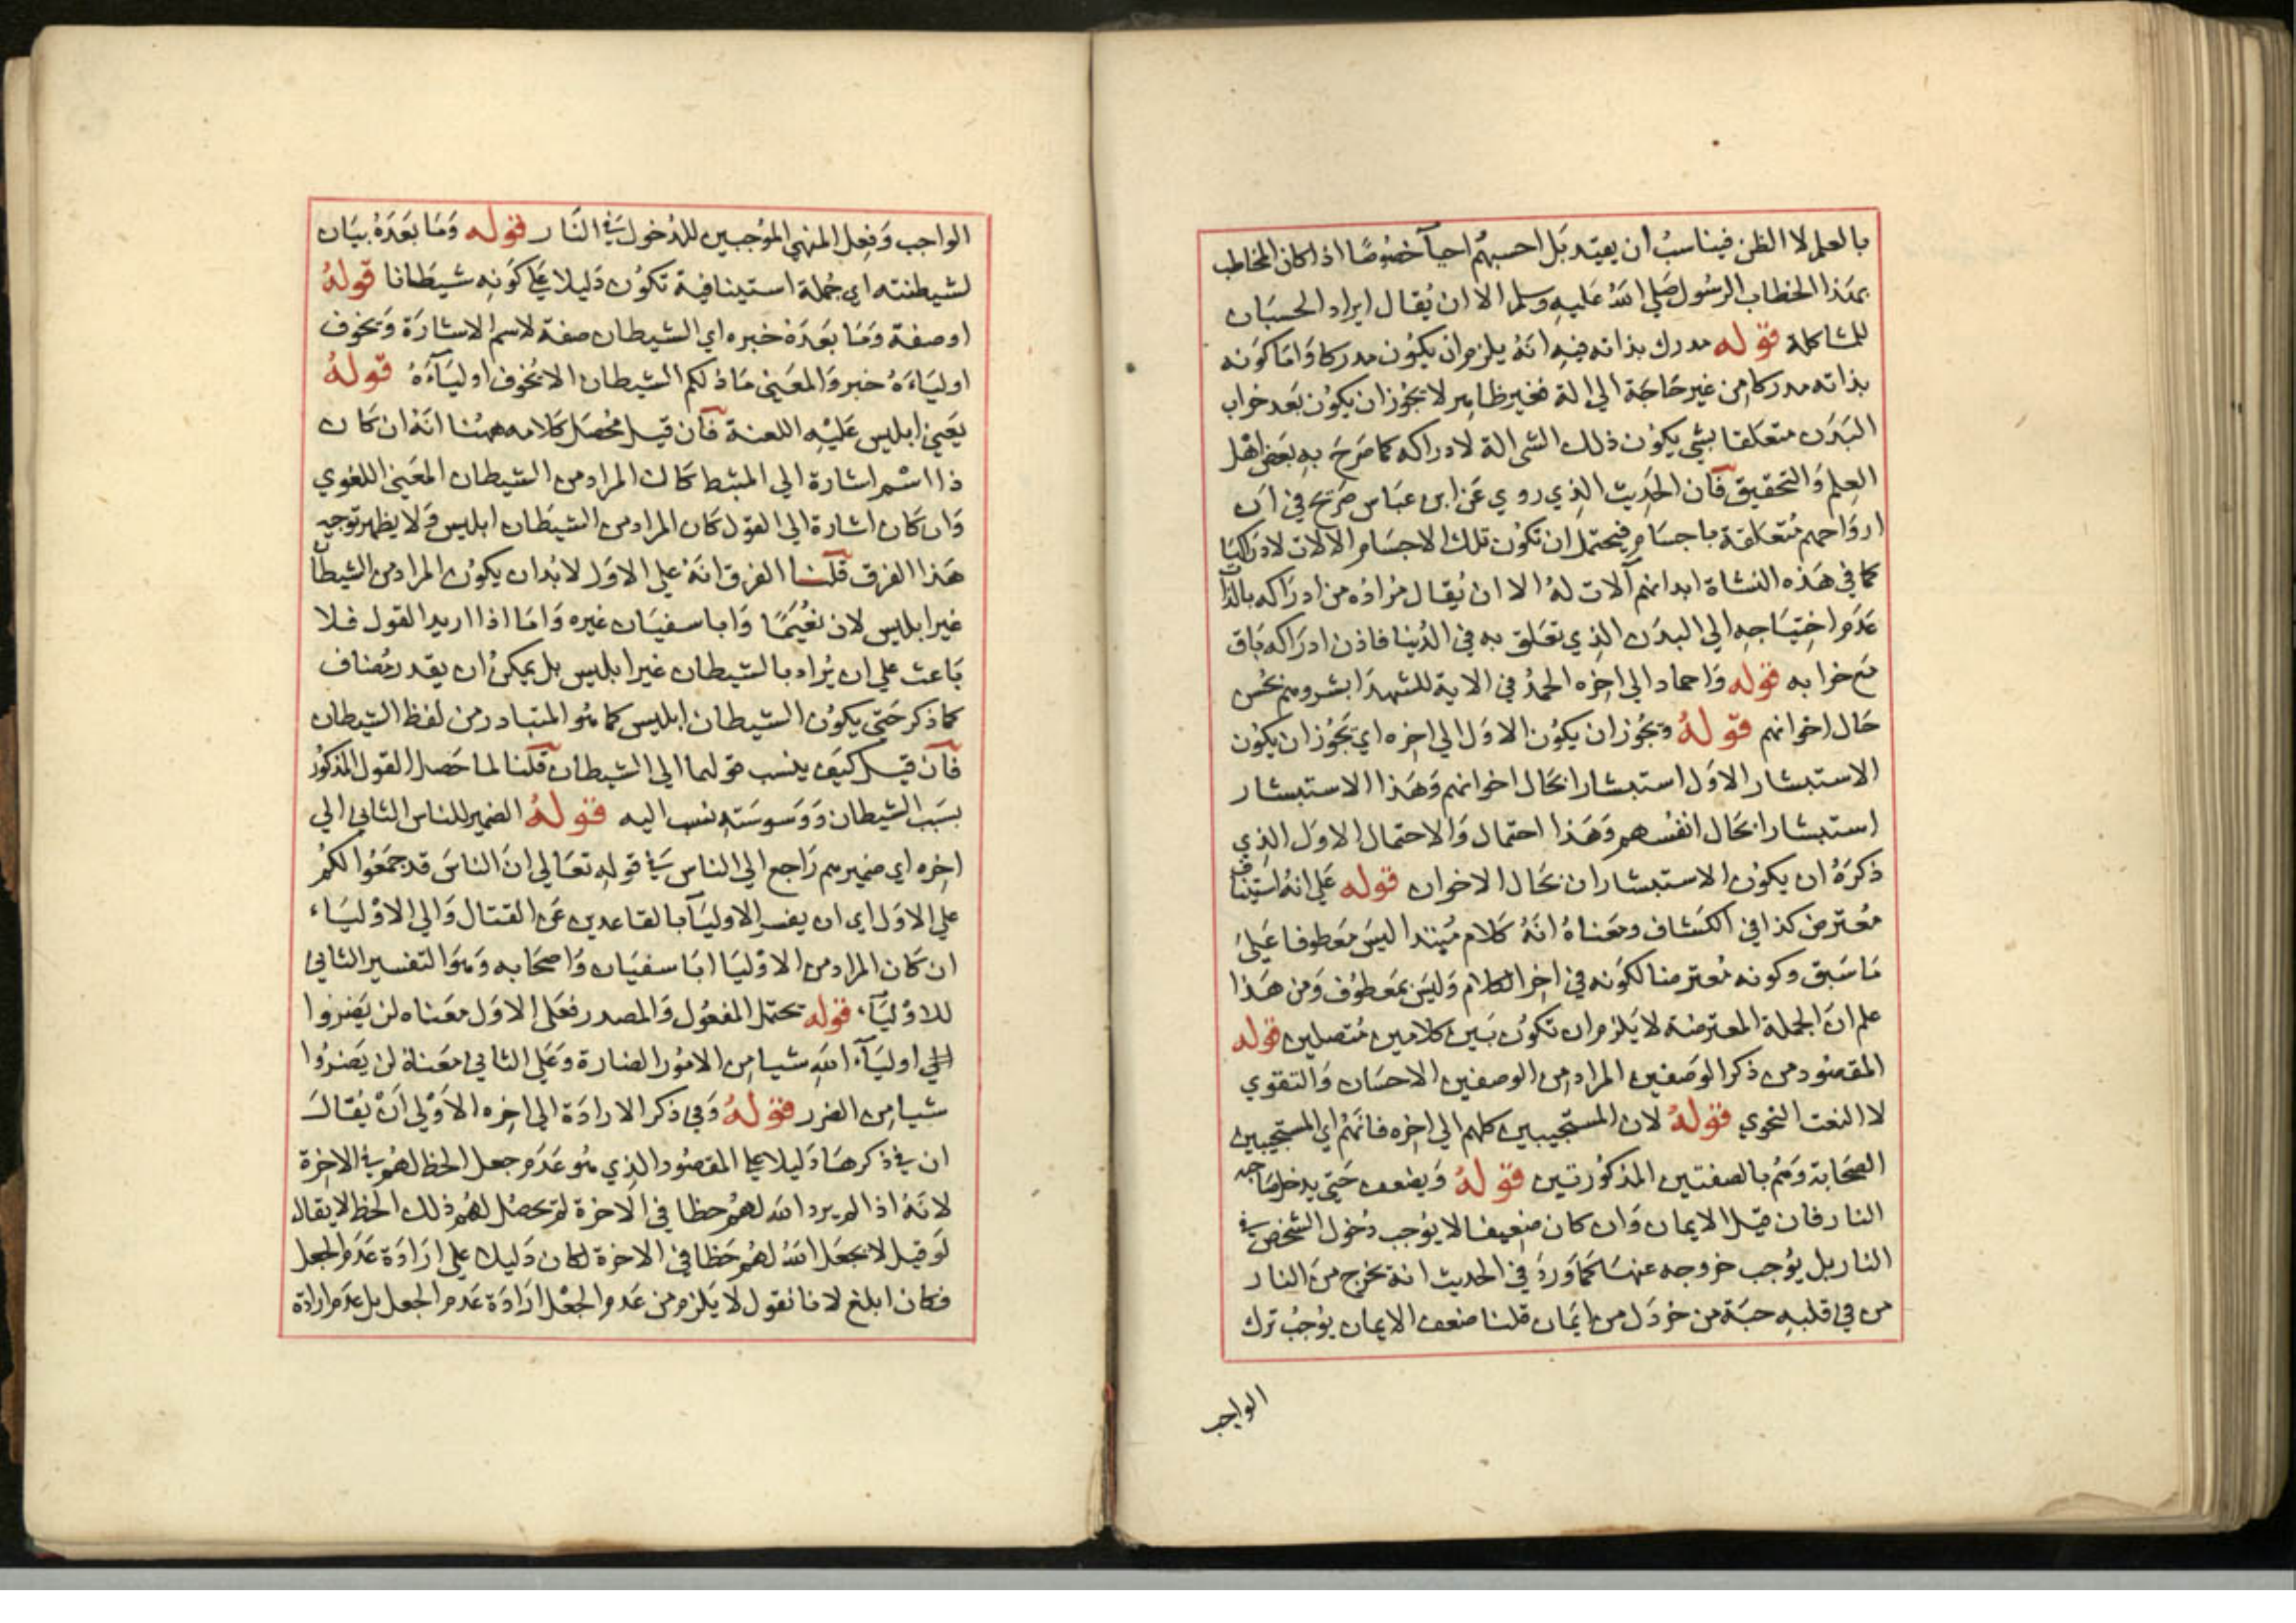 بالعلم لا الظن فيناسب ان يقيد بل احسبهم احيآ خصوصًا اذا كان المخاطب
بهذا الخطاب الرسول صلي الله عليه وسلم الا ان يُقال ايراد الحسبان
للمشاكلة قوله مدرك بذاته فيه انه يلزم ان يكون مدركا وَامّا كونه
بذاته مدركا من غير حَاجَة الي الة فغير ظاهر لا يجوز ان يكون بَعد خراب
البَدَن متعَلقا بشي يكون ذلك الشي الة لادراكه كما صَرحَ به بعَض اهْل
العِلم وَالتحقيق فان الحَدِيث الذِي روي عَن ابن عبَاس صَريح في ان
اروَاحهم مُتعَلقة باجسَام فيحتمل ان تكون تلك الاجسَام الالات لادراكها
كما في هَذه النشاة ابدانهم آلات لهُ الا ان يُقال مرَادُه من ادرَاكه بالذات
عَدَم احْتيَاجه الي البدَن الذِي تعَلق به في الدُنيا فاذن ادرَاكه بَاق
مَع خرابه قوله وَاحماد الي اخِره الحمدُ في الاية للشهدَا بشروهم بحُسن
حَال اخوانهم قوله ويَجُوز ان يكون الاوَل الي اخِره اي يَجُوز ان يكون
الاستبشار الاوَل استبشارا بحَال اخوانهم وَهَذا الاستبشار
استبشارا بحَال انفسهم وَهَذا احتمال وَالاحتمال الاوَل الذِي
ذكرَهُ ان يكون الاستبشاران بحَال الاخوان قوله عَلي انهُ استيناف
معُترض كذا في الكشاف ومَعناهُ انهُ كلام مُبتدا ليسَ معَطوفا عَليَ
مَا سَبق وكونه مُعترضا لكونه في اخِر الكلام وَليسَ بمَعطوف وَمن هَذا
علم ان الجملة المعترضة لا يَلزم ان تكون بَين كلامين مُتصلين قوله
المقصُود من ذكر الوَصَفين المراد من الوصفين الاحسَان وَالتقوي
لا النعت النحوي قوله لان المستجيبين كلهم الي اخِره فانهُم اي المستجيبين
الصحَابة وَهُم بالصفتين المذكورتين قوله وَيضعف حَتي يدخل صَاحبه
النار فان قيل الايمان وَان كان ضعِيفا لا يوجب دُخول الشخص في
النار بل يوُجب خروجه عنهَا كمَا وَردَ في الحديث انهُ يخرج من النار
من في قلبه حبَة من خردَل من ايمَان قلنا ضعف الايمان يوُجبُ ترك
الواجب
الواجب وَفِعل المنهي الموُجبين للدُخول في النار قوله وَمَا بَعَدَهُ بيَان
لشيطنته اي جُملة استينافية تكون دَليلا عَلي كَونِه شيطانا قوله
او صفة وَمَا بَعَدَهُ خبره اي الشيطان صفة لاسم الاشارَة وَيخوف
اوليَاءهُ خبر وَالمعَني مَا ذلكم الشيطان الا يُخوف اوليَآءهُ قوله
يَعَني ابليس عَليْهِ اللعنة فان قيل مُحَصل كلامه ههنا انهُ ان كان
ذا اسْم اشارة الي المثبط كان المراد من الشيطان المعَني اللغوي
وَان كان اشارة الي القول كان المراد من الشيطان ابليس وَلا يظهر توجيه
هَذا الفرق قلنا الفرق انهُ علي الاوَل لا بُد ان يكون المراد من الشيطان
غير ابليس لان نعُيَمًا وَابا سفيَان غيره وَامَا اذا اريد القول فلا
بَاعث علي ان يُراد بالشيطان غير ابليس بل يمكن ان يقدر مُضاف
كما ذكر حَتي يكون الشيطان ابليس كما هُو المتبادر من لفظ الشيطان
فان قيل كيف ينسب قولهما الي الشيطان قلنا لما حَصل القول المذكور
بسَبَب الشيطان وَوَسوَسَته نسب اليه قوله الضمير للناس الثاني الي
اخِره اي ضمير هم رَاجع الي الناس في قوله تعَالي ان الناسَ قد جمَعُوا لكُم
علي الاوَل اي ان يفسر الاوليآ بالقاعدين عَن القتال وَالي الاوْليَاء
ان كان المراد من الاوْليَا ابَا سفيَان وَاصحَابه وَهوَ التفسير الثاني
للاوْليَآء قوله تحتمل المفعُول وَالمصدر فعَلي الاوَل معَناه لن يَضروا
اوليَآء اللهِ شيا من الامُور الضارة وَعَلي الثاني معَناهُ لن يَضرُوا
شيا من الضرر قوله وَفي ذكر الارادَة الي اخِره الاوْلي اَنْ يُقال
ان في ذكرهَا دَليلا عَلي المقصُود الذِي هُو عَدَم جعل الحظ لهُم في الاخِرة
لانهُ اذا لم يرد الله لهُم حظا في الآخرة لم يحصُل لهُم ذلك الحظ لا يقال
لَو قيل لا يجعَل اللهُ لهُم حَظا في الاخرة لكان دَليلا علي ارَادَة عَدَم الجعل
فكان ابلغ لانا نقول لا يَلزم من عَدم الجعْل ارَادَة عَدم الجعل بل عدَم ارادة